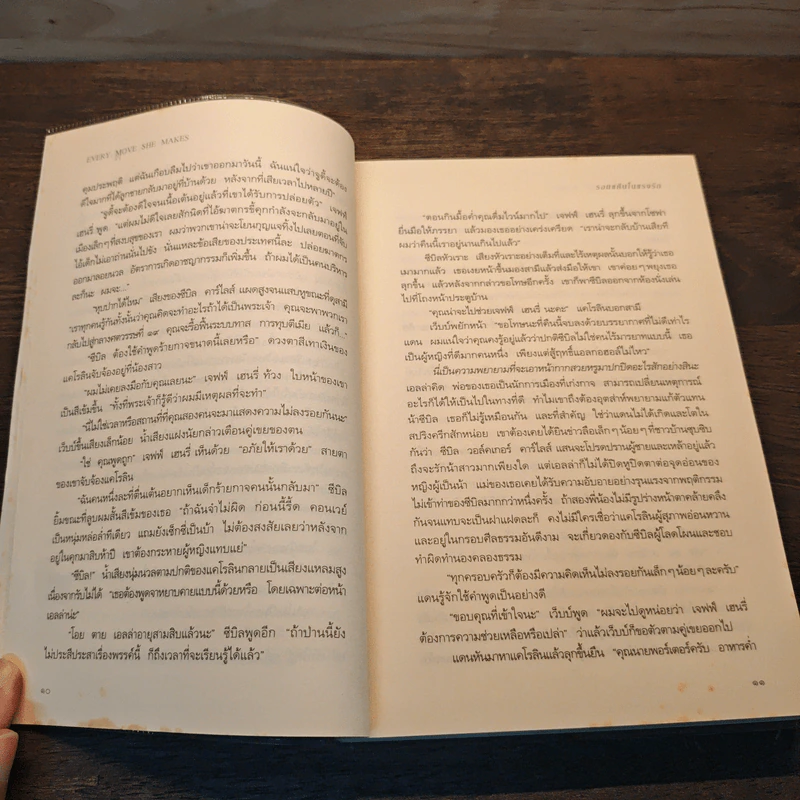 EVERY MOVE SHE MAKES
คุมประพฤติ แต่ฉันเกือบลืมไปว่าเขาออกมาวันนี้ ฉันแน่ใจว่าจูดี้จะต้อง
ดีใจมากที่ได้ลูกชายกลับมาอยู่ที่บ้านด้วย หลังจากที่เสียเวลาไปหลายปี"
"จูดี้จะต้องดีใจจนเนื้อเต้นอยู่แล้วที่เขาได้รับการปล่อยตัว" เจฟฟ์
เฮนรี่ พูด "แต่ผมไม่ดีใจเลยสักนิดที่ไอ้ฆาตกรขี้คุกกำลังจะกลับมาอยู่ใน
เมืองเล็กๆที่สงบสุขของเรา ผมว่าพวกเขาน่าจะโยนกุญแจทิ้งไปเลยตอนที่จับ
ไอ้เด็กไม่เอาถ่านนั่นไปขัง นั่นแหละข้อเสียของประเทศนี้ละ ปล่อยฆาตกร
ออกมาลอยนวล อัตราการเกิดอาชญากรรมก็เพิ่มขึ้น ถ้าผมได้เป็นคนบริหาร
ละก็นะ ผมจะ..."
"หุบปากได้ไหม" เสียงของซีบิล คาร์ไลล์ แผดสูงจนแสบหูขณะที่ดุสามี
"เราทุกคนรู้กันทั้งนั้นว่าคุณคิดจะทำอะไรถ้าได้เป็นพระเจ้า คุณจะพาพวกเรา
กลับไปสู่กลางศตวรรษที่ ๑๙ คุณจะรื้อฟื้นระบบทาส การทุบตีเมีย แล้วก็..."
"ซีบิล ต้องใช้คำพูดร้ายกาจขนาดนี้เลยหรือ" ดวงตาสีเทาเงินของ
แคโรลินจับจ้องอยู่ที่น้องสาว
"ผมไม่เคยลงมือกับคุณเลยนะ" เจฟฟ์ เฮนรี่ ท้วง ใบหน้าของเขา
เป็นสีเข้มขึ้น "ทั้งที่พระเจ้าก็รู้ดีว่าผมมีเหตุผลที่จะทำ"
"นี่ไม่ใช่เวลาหรือสถานที่ที่คุณสองคนจะมาแสดงความไม่ลงรอยกันนะ"
เว็บบ์ขึ้นเสียงเล็กน้อย น้ำเสียงแฝงนัยกล่าวเตือนคู่เขยของตน
"ใช่ คุณพูดถูก" เจฟฟ์ เฮนรี่ เห็นด้วย "อภัยให้เราด้วย" สายตา
ของเขาจับจ้องแคโรลิน
"ฉันคนหนึ่งละที่ตื่นเต้นอยากเห็นเด็กร้ายกาจคนนั้นกลับมา" ซีบิล
ยิ้มขณะที่ลูบผมสั้นสีเข้มของเธอ "ถ้าฉันจำไม่ผิด ก่อนนี้รี้ด คอนเวย์
เป็นหนุ่มหล่อล่ำทีเดียว แถมยังเซ็กซี่เป็นบ้า ไม่ต้องสงสัยเลยว่าหลังจาก
อยู่ในคุกมาสิบห้าปี เขาต้องกระหายผู้หญิงแทบแย่"
"ซีบิล!" น้ำเสียงนุ่มนวลตามปกติของแคโรลินกลายเป็นเสียงแหลมสูง
เนื่องจากรับไม่ได้ "เธอต้องพูดจาหยาบคายแบบนี้ด้วยหรือ โดยเฉพาะต่อหน้า
เอลล่าน่ะ"
"โอย ตาย เอลล่าอายุสามสิบแล้วนะ" ซีบิลพูดอีก "ถ้าป่านนี้ยัง
ไม่ประสีประสาเรื่องพรรค์นี้ ก็ถึงเวลาที่จะเรียนรู้ได้แล้ว"
๑๐
"ตอนกินมื้อค่ำคุณดื่มไวน์มากไป" เจฟฟ์ เฮนรี่ ลุกขึ้นจากโซฟา
ยื่นมือให้ภรรยา แล้วมองเธออย่างเคร่งเครียด "เราน่าจะกลับบ้านเสียที
ผมว่าคืนนี้เราอยู่นานเกินไปแล้ว"
ซีบิลหัวเราะ เสียงหัวเราะอย่างเต็มที่และไร้เหตุผลนั้นบอกให้รู้ว่าเธอ
เมามากแล้ว เธอเงยหน้าขึ้นมองสามีแล้วส่งมือให้เขา เขาค่อยๆพยุงเธอ
ลุกขึ้น แล้วหลังจากกล่าวขอโทษอีกครั้ง เขาก็พาซีบิลออกจากห้องนั่งเล่น
ไปที่โถงหน้าประตูบ้าน
"คุณน่าจะไปช่วยเจฟฟ์ เฮนรี่ นะคะ" แคโรลินบอกสามี
เว็บบ์พยักหน้า "ขอโทษนะที่คืนนี้จบลงด้วยบรรยากาศที่ไม่ดีเท่าไร
แดน ผมแน่ใจว่าคุณคงรู้อยู่แล้วว่าปกติซีบิลไม่ใช่คนไร้มารยาทแบบนี้ เธอ
เป็นผู้หญิงที่ดีมากคนหนึ่ง เพียงแต่สู้ฤทธิ์แอลกอฮอล์ไม่ไหว"
นี่เป็นความพยายามที่จะเอาหน้ากากสวยหรูมาปกปิดอะไรสักอย่างสินะ
เอลล่าคิด พ่อของเธอเป็นนักการเมืองที่เก่งกาจ สามารถเปลี่ยนเหตุการณ์
อะไรก็ได้ให้เป็นไปในทางที่ดี ทำไมเขาถึงต้องอุตส่าห์พยายามแก้ตัวแทน
น้าซีบิล เธอก็ไม่รู้เหมือนกัน และที่สำคัญ ใช่ว่าแดนไม่ได้เกิดและโตใน
สปริงครีกสักหน่อย เขาต้องเคยได้ยินข่าวลือเล็กๆน้อยๆที่ชาวบ้านซุบซิบ
กันว่า ซีบิล วอล์คเกอร์ คาร์ไลล์ แสนจะโปรดปรานผู้ชายและเหล้าอยู่แล้ว
ถึงจะรักน้าสาวมากเพียงใด แต่เอลล่าก็ไม่ได้ปิดหูปิดตาต่อจุดอ่อนของ
หญิงผู้เป็นน้า แม่ของเธอเคยได้รับความอับอายอย่างรุนแรงจากพฤติกรรม
ไม่เข้าท่าของซีบิลมากกว่าหนึ่งครั้ง ถ้าสองพี่น้องไม่มีรูปร่างหน้าตาคล้ายคลึง
กันจนแทบจะเป็นฝาแฝดละก็ คงไม่มีใครเชื่อว่าแคโรลินผู้สุภาพอ่อนหวาน
และอยู่ในกรอบศีลธรรมอันดีงาม จะเกี่ยวดองกับซีบิลผู้โลดโผนและชอบ
ทำผิดทำนองคลองธรรม
"ทุกครอบครัวก็ต้องมีความคิดเห็นไม่ลงรอยกันเล็กๆน้อยๆละครับ"
แดนรู้จักใช้คำพูดเป็นอย่างดี
"ขอบคุณที่เข้าใจนะ" เว็บบ์พูด "ผมจะไปดูหน่อยว่า เจฟฟ์ เฮนรี่
ต้องการความช่วยเหลือหรือเปล่า" ว่าแล้วเว็บบ์ก็ขอตัวตามคู่เขยออกไป
แดนหันมาหาแคโรลินแล้วลุกขึ้นยืน "คุณนายพอร์เตอร์ครับ อาหารค่ำ
๑๑